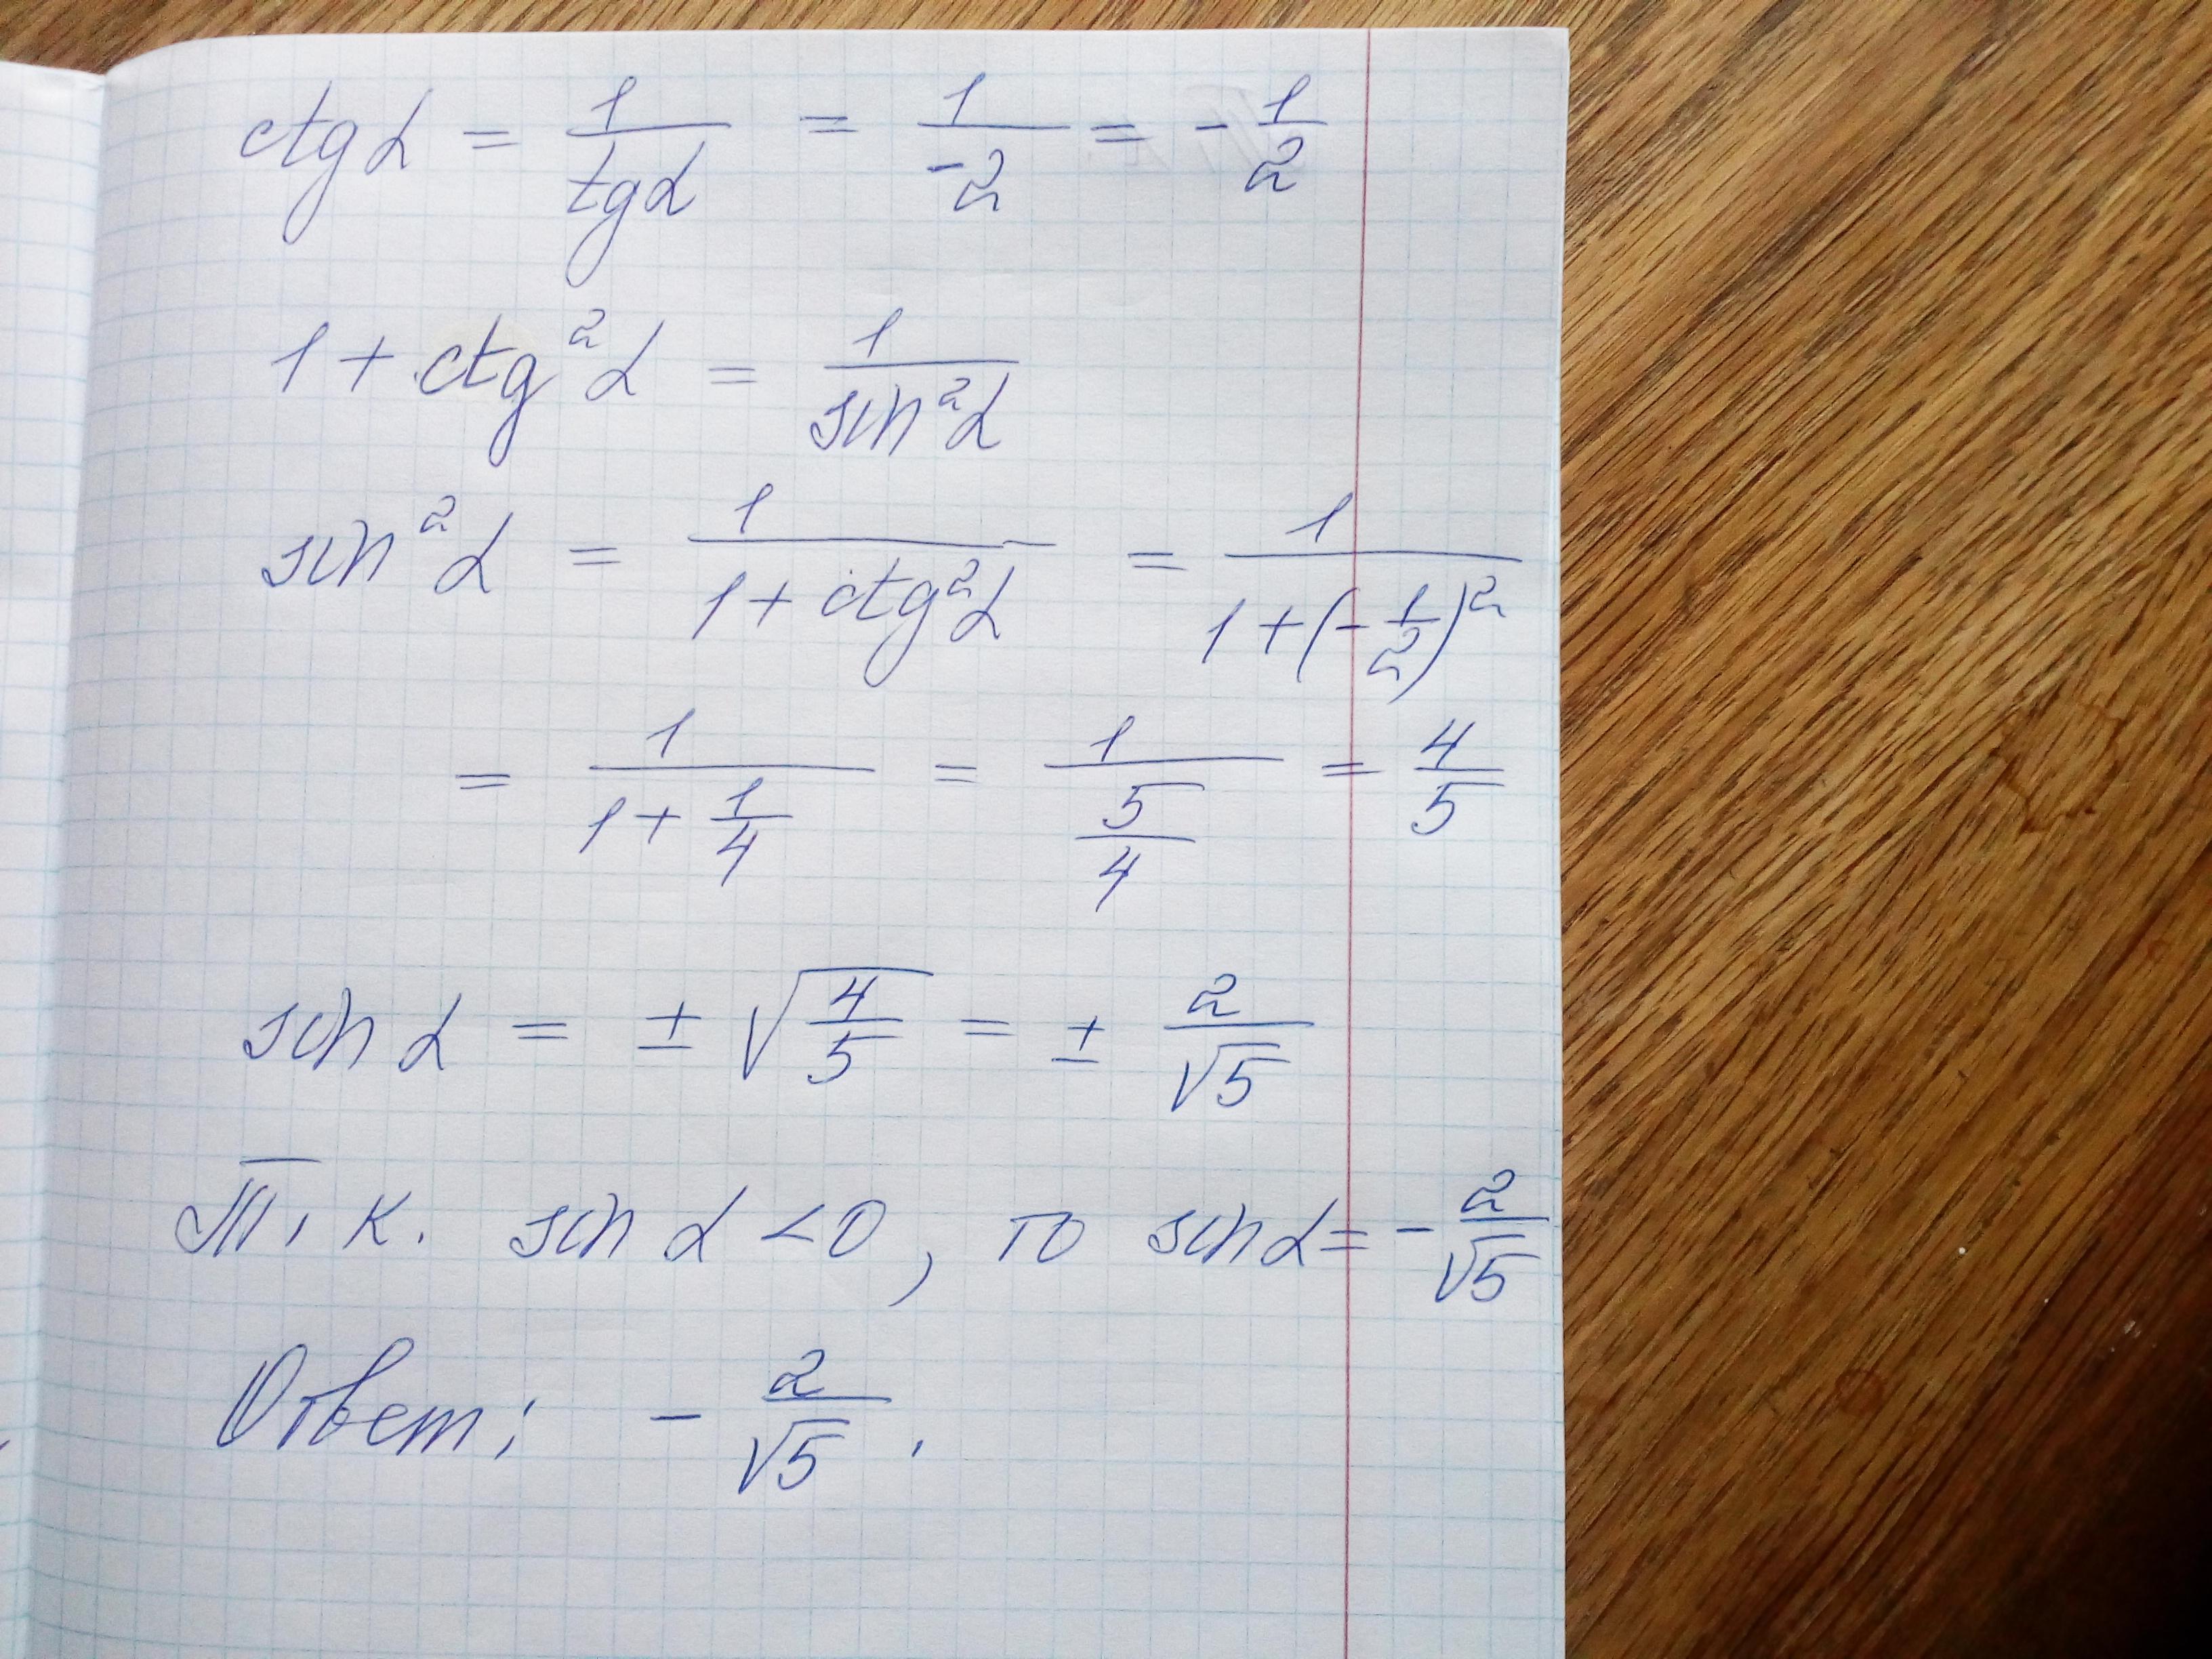 ctg α = 1/tg α = 1/-2 = -1/2
1 + ctg²α = 1/sin²α
sin²α = 1/(1 + ctg²α) = 1/(1 + (-1/2)²)
= 1/(1 + 1/4) = 1/(5/4) = 4/5
sin α = ± √(4/5) = ± 2/√5
Т. к. sin α < 0, то sin α = - 2/√5
Ответ: - 2/√5.